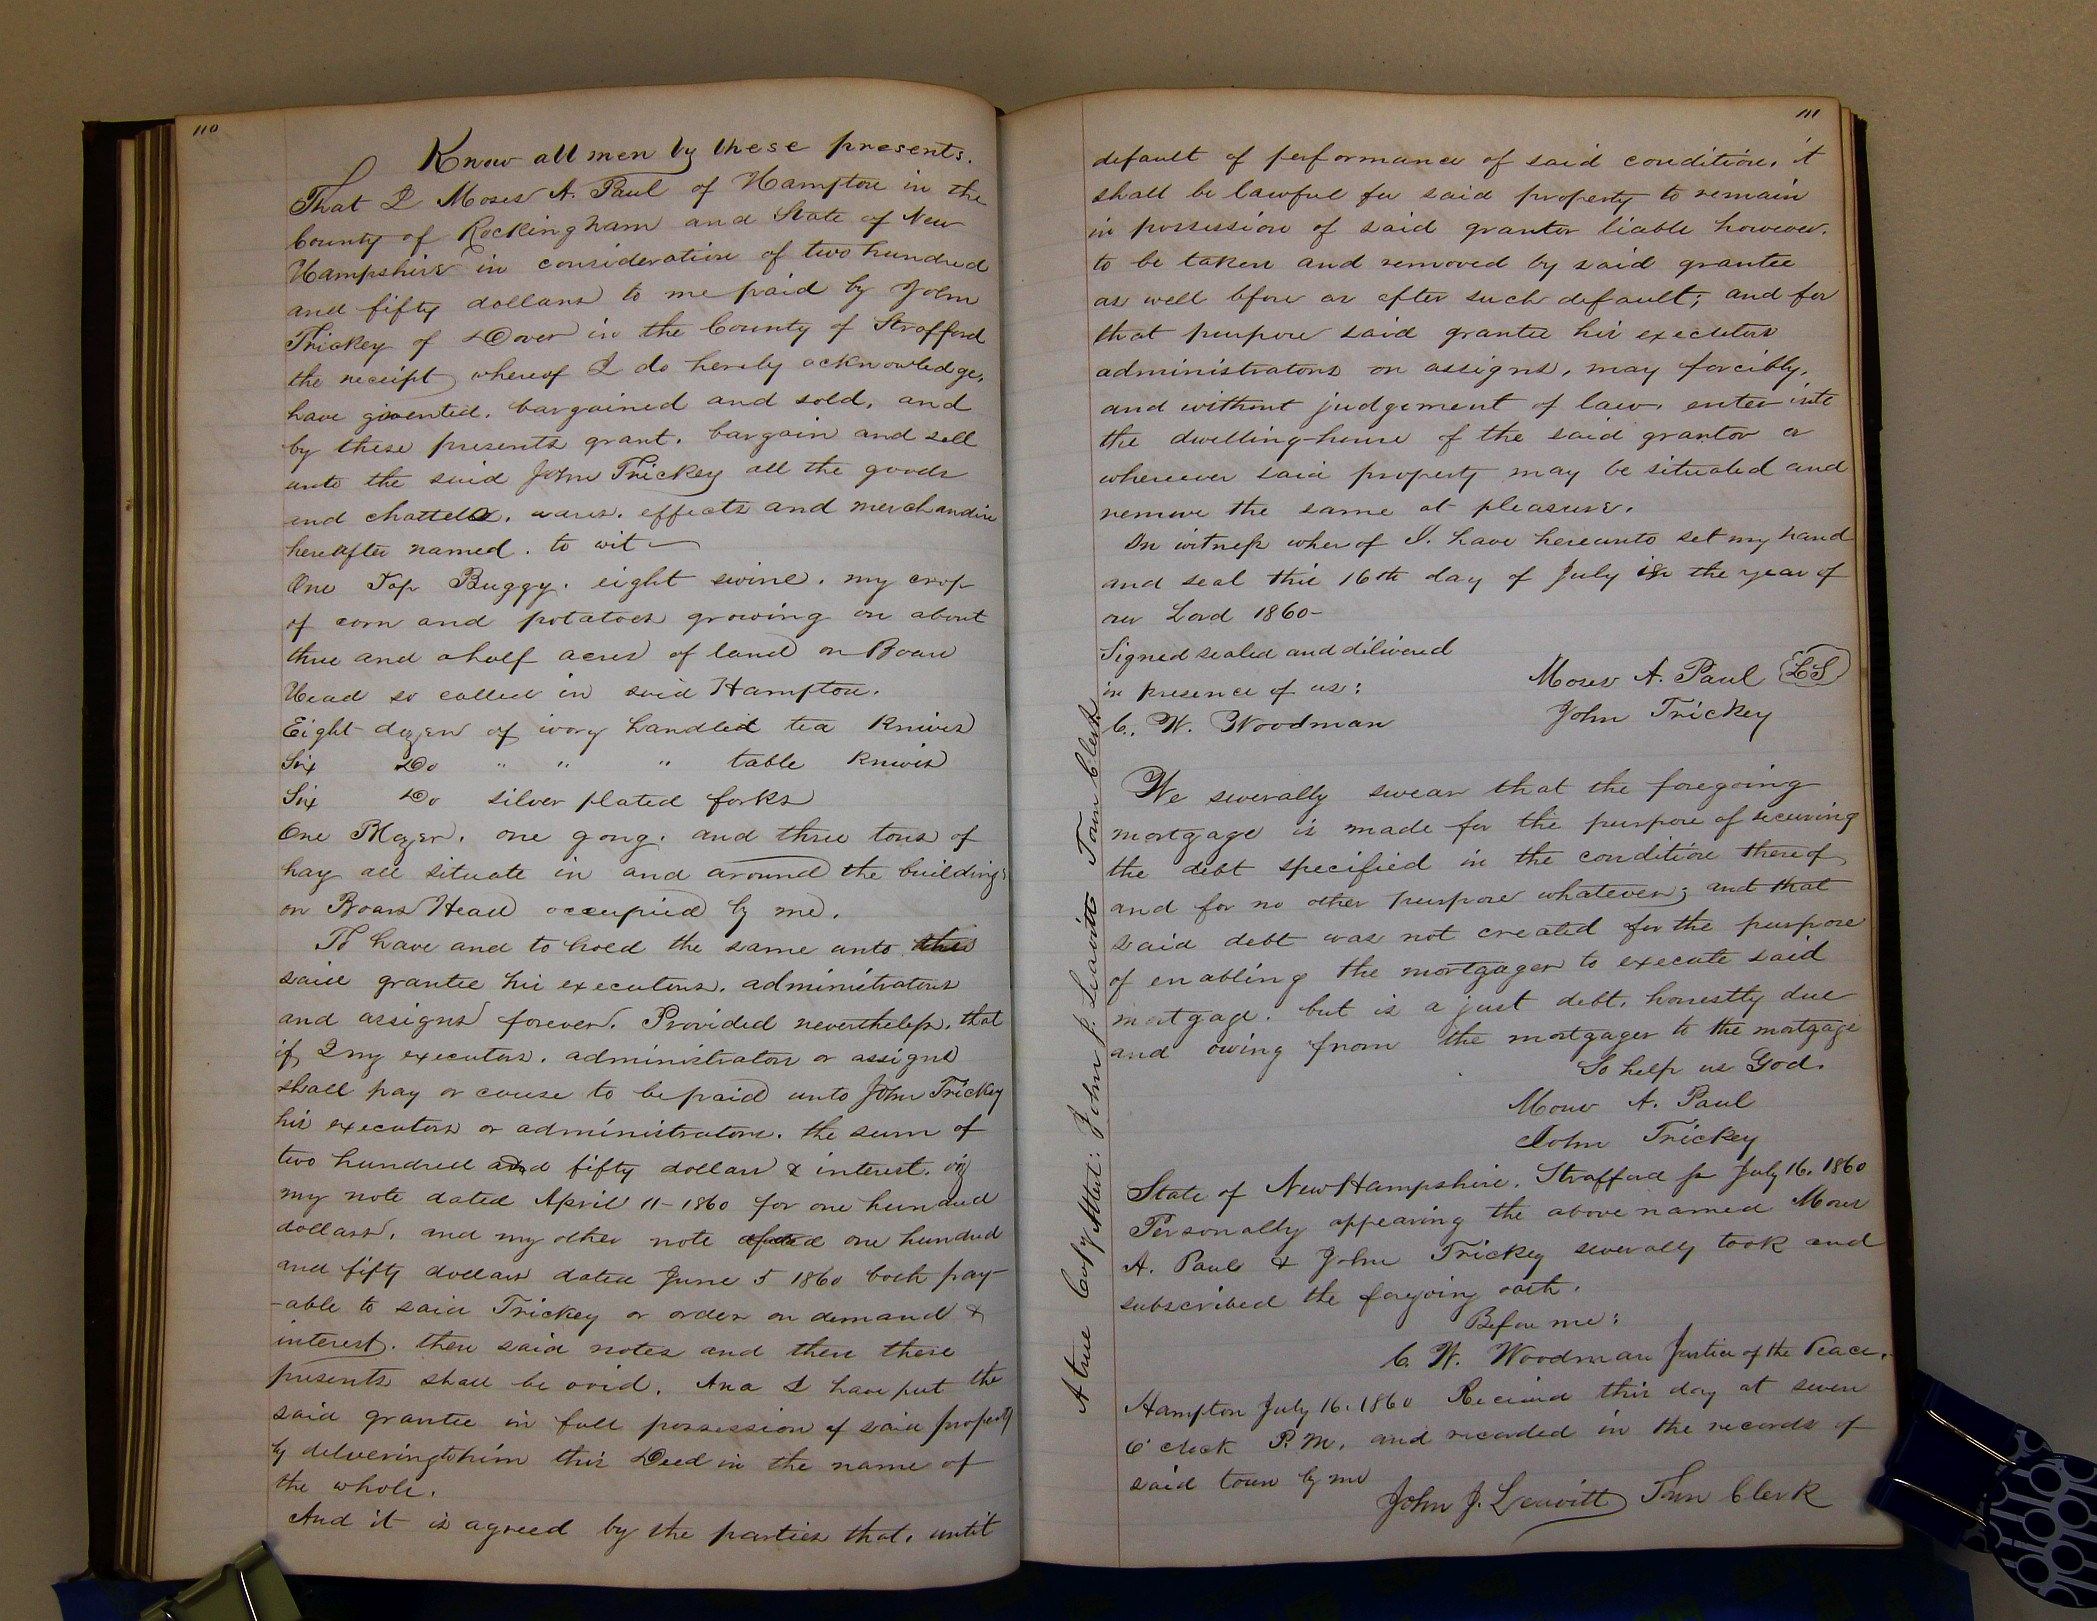 110
Know all men by these presents.
That I Moses A. Paul of Hampton in the
County of Rockingham and State of New
Hampshire in consideration of two hundred
and fifty dollars to me paid by John
Trickey of Dover in the County of Strafford
the receipt whereof I do hereby acknowledge,
have granted, bargained and sold, and
by these presents grant, bargain and sell
unto the said John Trickey all the goods
and chattels, wares, effects and merchandise
hereafter named, to wit
One Top Buggy, eight swine, my crop
of corn and potatoes growing on about
three and a half acres of land on Boars
Head so called in said Hampton.
Eight dozen of ivory handled tea knives
Six Do " " " table knives
Six Do silver plated forks
One gong, and three tons of
hay all situate in and around the buildings
on Boars Head occupied by me.
To have and to hold the same unto the
said grantee his executors, administrators
and assigns forever. Provided nevertheless, that
if I my executors, administrators or assigns
shall pay or cause to be paid unto John Trickey
his executors or administrators, the sum of
two hundred and fifty dollars & interest, viz
my note dated April 11-1860 for one hundred
dollars, and my other note one hundred
and fifty dollars dated June 5 1860 both pay-
-able to said Trickey or order on demand &
interest, then said notes and then these
presents shall be void. And I have put the
said grantee in full possession of said property
by delivering to him this Deed in the name of
the whole.
And it is agreed by the parties that, until
111
default of performance of said condition, it
shall be lawful for said property to remain
in possession of said grantor liable however,
to be taken and removed by said grantee
as well bfore as after such default; and for
that purpose said grantee his executors
administrators or assigns, may forcibly,
and without judgement of law, enter into
the dwelling-house of the said grantor or
wherever said property may be situated and
remove the same at pleasure.
In witness wherof I, have hereunto set my hand
and seal this 16th day of July in the year of
our Lord 1860-
Signed sealed and delivered
in presence of us:
Moses A. Paul LS
C. W. Woodman
John Trickey
We severally swear that the foregoing
mortgage is made for the purpose of securing
the debt specified in the condition thereof
and for no other purpose whatever; and that
said debt was not created for the purpose
of enabling the mortgager to execute said
mortgage, but is a just debt, honestly due
and owing from the mortgager to the mortgage
So help us God.
Moses A. Paul
John Trickey
State of New Hampshire. Strafford ss July 16, 1860
Personally appearing the above named Moses
A. Paul & John Trickey severally took and
subscribed the foregoing oath.
Before me:
C. W. Woodman Justice of the Peace.
Hampton July 16, 1860 Received this day at seven
O'clock P.M. and recorded in the records of
said town by me
John J. Leavitt Town Clerk
A true Copy Attest: John J. Leavitt Town Clerk